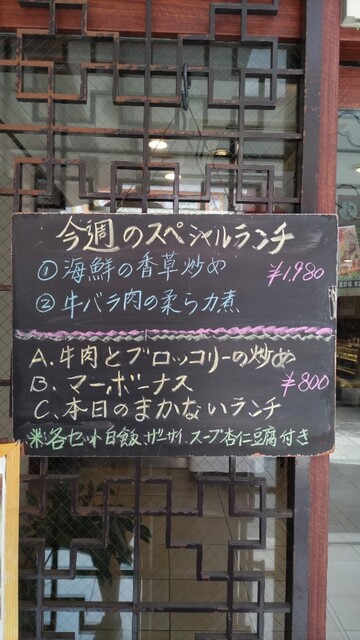 今週のスペシャルランチ
①海鮮の香草炒め ¥1,980
②牛バラ肉の柔らカ煮
A.牛肉とブロッコリーの炒め
B.マーボーナス ¥800
C.本日のまかないランチ
※各セット白飯、ザーサイ、スープ杏仁豆腐付き